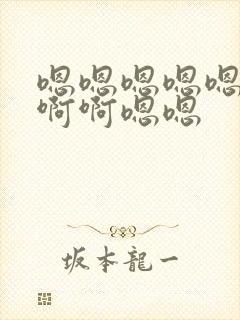 嗯嗯嗯嗯嗯
啊啊嗯嗯
坂本龍一